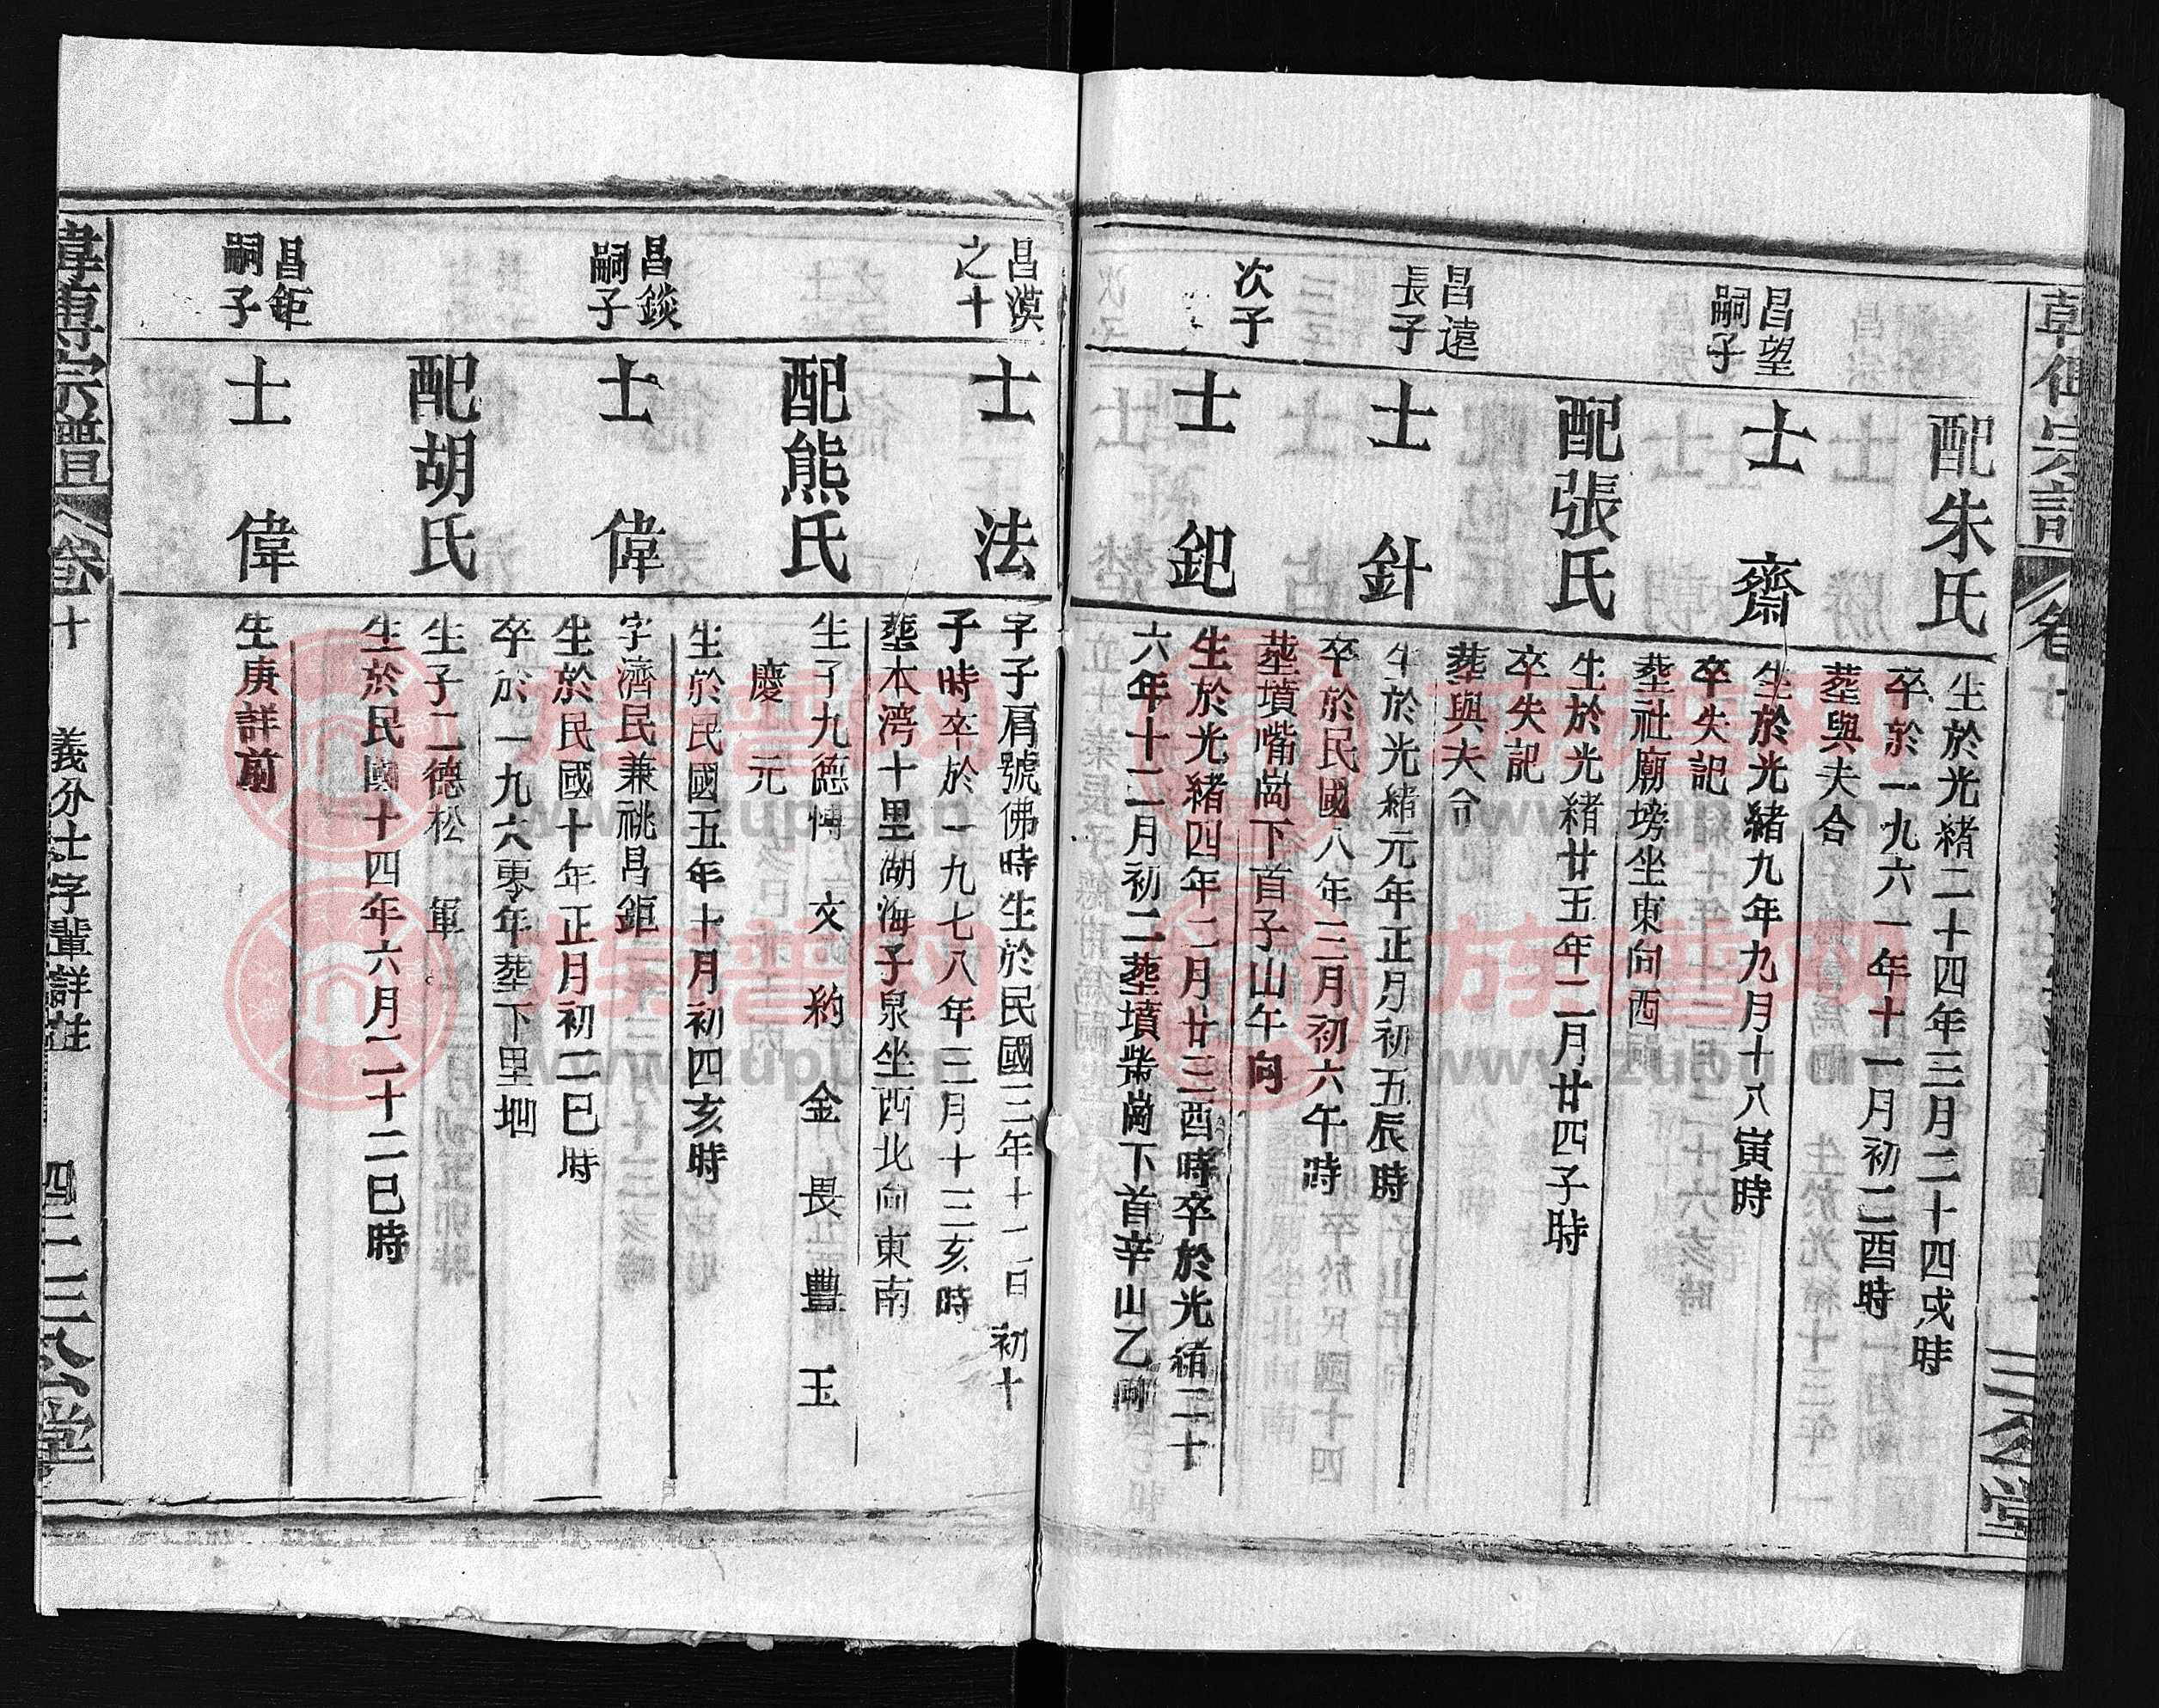 配朱氏
生於光緒二十四年三月二十四戌時
卒於一九六一年十一月初二酉時
葬與夫合
昌望
嗣子
士齋
生於光緒九年九月十八寅時
卒失記
葬社廟塝坐東向西
配張氏
生於光緒廿五年二月廿四子時
卒失記
葬與夫合
昌遠
長子
士針
生於光緒元年正月初五辰時
卒於民國八年三月初六午時
葬墳嘴崗下首子山午向
次子
士鈀
生於光緒四年二月廿三酉時卒於光緒二十
六年十二月初二葬墳柴崗下首辛山乙向
三公堂
昌漠
之十
士法
字子屑號佛時生於民國三年十一日初十
子時卒於一九七八年三月十三亥時
葬本湾十里湖海子泉坐西北向東南
生子九德愽 文 約 金 畏 豐 玉
慶 元
配熊氏
生於民國五年十月初四亥時
昌錟
嗣子
士偉
字濟民兼祧昌鉅
生於民國十年正月初二巳時
卒於一九六零年葬下里坳
生子二德松 軍
配胡氏
生於民國十四年六月二十二巳時
昌鉅
嗣子
士偉
生庚詳前
宗譜
卷十
義分士字輩詳註
四二
三公堂
族谱网
www.zupu.cn
族谱网
www.zupu.cn
族谱网
www.zupu.cn
族谱网
www.zupu.cn